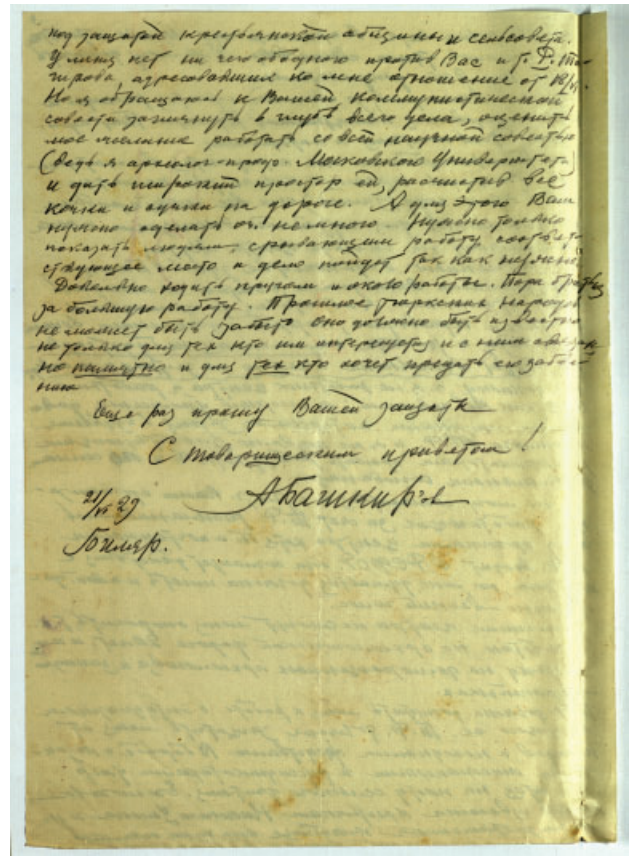 под защитой крестьянской общины и сельсовета.
У меня нет ни чего обидного против Вас и Г. Ф.
адресовавших ко мне отношение от 18/VI.
Но я обращаюсь к Вашей коммунистической
совести заглянуть в глубь всего дела, оценить
мое желание работать со всей научной совестью
(ведь я археолог-проф. Московского Университета)
и дать широкий простор ей, расчистив все
кочки и сучки на дороге. А для этого Вам
нужно сделать оч. немного. Нужно только
показать людям, срывающим работу, соответ-
ствующее место и дело пойдет так как нужно.
Довольно ходить кругом и около работы. Пора браться
за большую работу. Прошлое тюркских народов
не может быть забыто оно должно быть известно
не только для тех кто им интересуется и с ним связан
но памятно и для тех кто хочет предать его забве-
нию
Еще раз прошу Вашей защиты
С товарищеским приветом!
АБашкиров
21/VI 29
Биляр.